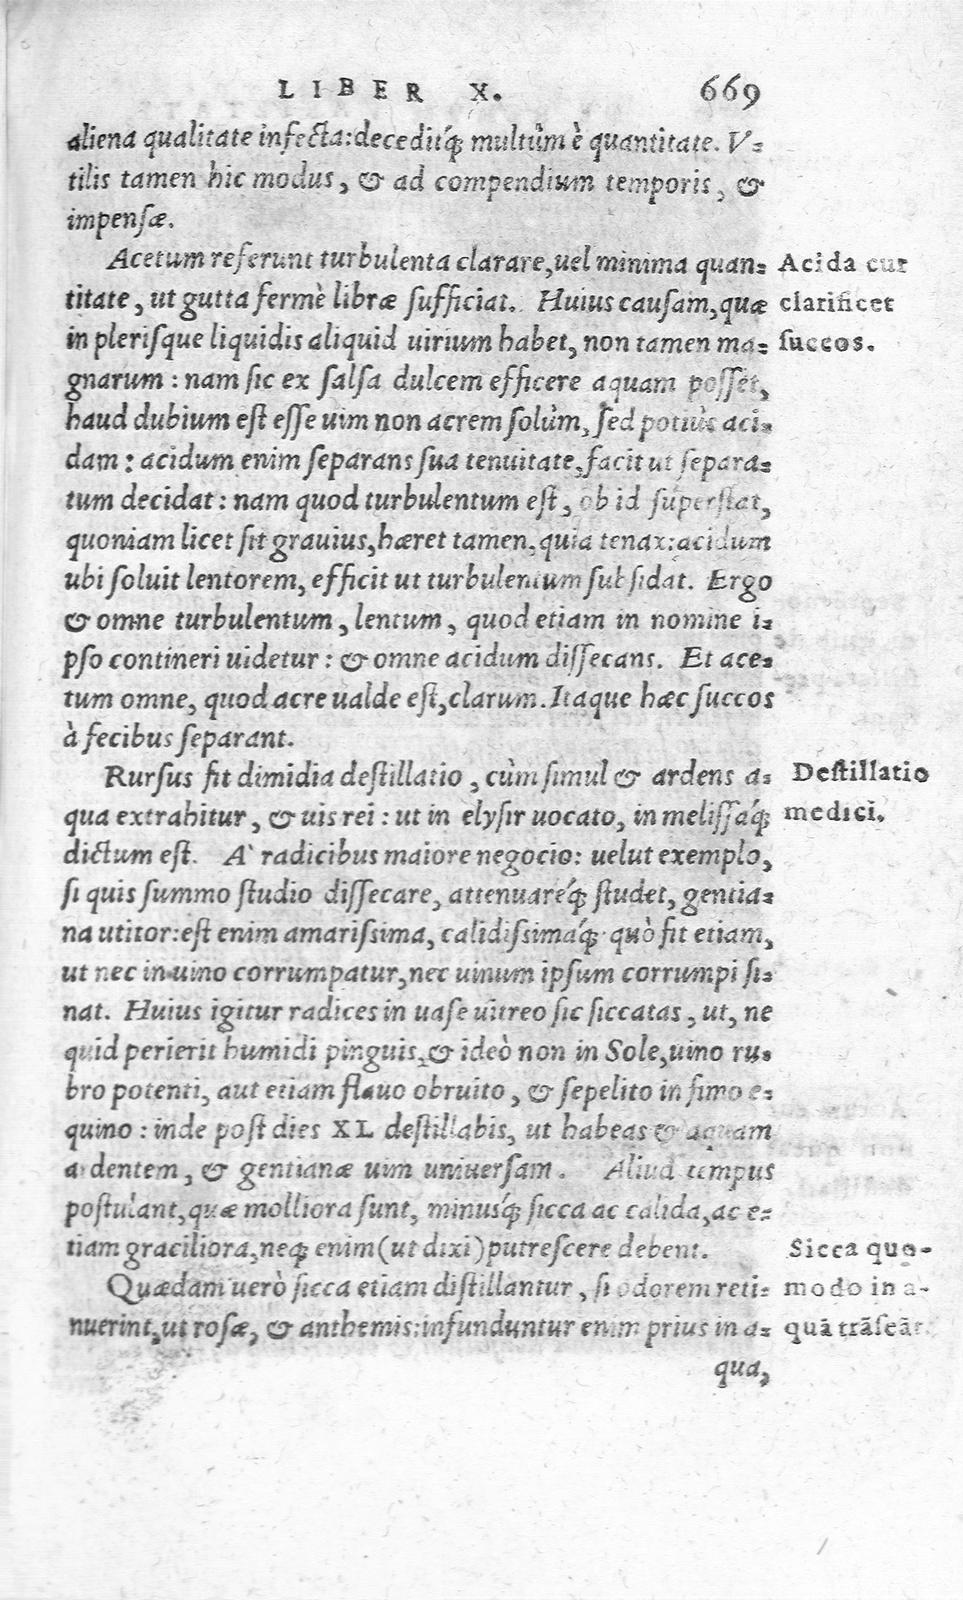 LIBER X. 669
aliena qualitate infecta: deceditq́; multùm è quantitate. V-
tilis tamen hic modus, & ad compendium temporis, &
impensæ.
Acetum referunt turbulenta clarare, uel minima quan-
titate, ut gutta fermè libræ sufficiat. Huius causam, quæ
in plerisque liquidis aliquid uirium habet, non tamen ma-
gnarum: nam sic ex salsa dulcem efficere aquam posset,
haud dubium est esse uim non acrem solùm, sed potiùs aci-
dam: acidum enim separans sua tenuitate, facit ut separa-
tum decidat: nam quod turbulentum est, ob id superstat,
quoniam licet sit grauius, hæret tamen, quia tenax: acidum
ubi soluit lentorem, efficit ut turbulentum subsidat. Ergo
& omne turbulentum, lentum, quod etiam in nomine i-
pso contineri uidetur: & omne acidum dissecans. Et ace-
tum omne, quod acre ualde est, clarum. Itaque hæc succos
à fecibus separant.
Acida cur
clarificet
succos.
Rursus fit dimidia destillatio, cùm simul & ardens a-
qua extrahitur, & uis rei: ut in elysir uocato, in melissáq;
dictum est. A` radicibus maiore negocio: uelut exemplo,
si quis summo studio dissecare, attenuaréq; studet, gentia-
na utitor: est enim amarissima, calidissimáq; quò fit etiam,
ut nec in uino corrumpatur, nec uinum ipsum corrumpi si-
nat. Huius igitur radices in uase uitreo sic siccatas, ut, ne
quid perierit humidi pinguis, & ideò non in Sole, uino ru-
bro potenti, aut etiam flauo obruito, & sepelito in fimo e-
quino: inde post dies XL destillabis, ut habeas & aquam
ardentem, & gentianæ uim uniuersam. Aliud tempus
postulant, quæ molliora sunt, minusq́; sicca ac calida, ac e-
tiam graciliora, neq; enim (ut dixi) putrescere debent.
Destillatio
medici.
Quædam uerò sicca etiam distillantur, si odorem reti-
nuerint, ut rosæ, & anthemis: infunduntur enim prius in a-
Sicca quo-
modo in a-
quā trāseāt.
qua,